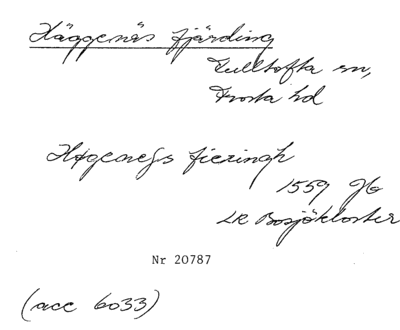 Häggenäs fjärding
Fulltofta sn,
Frosta hd
Hægeness fieringh
1559 Jb
LR Bosjökloster
Nr 20787
(acc 6033)